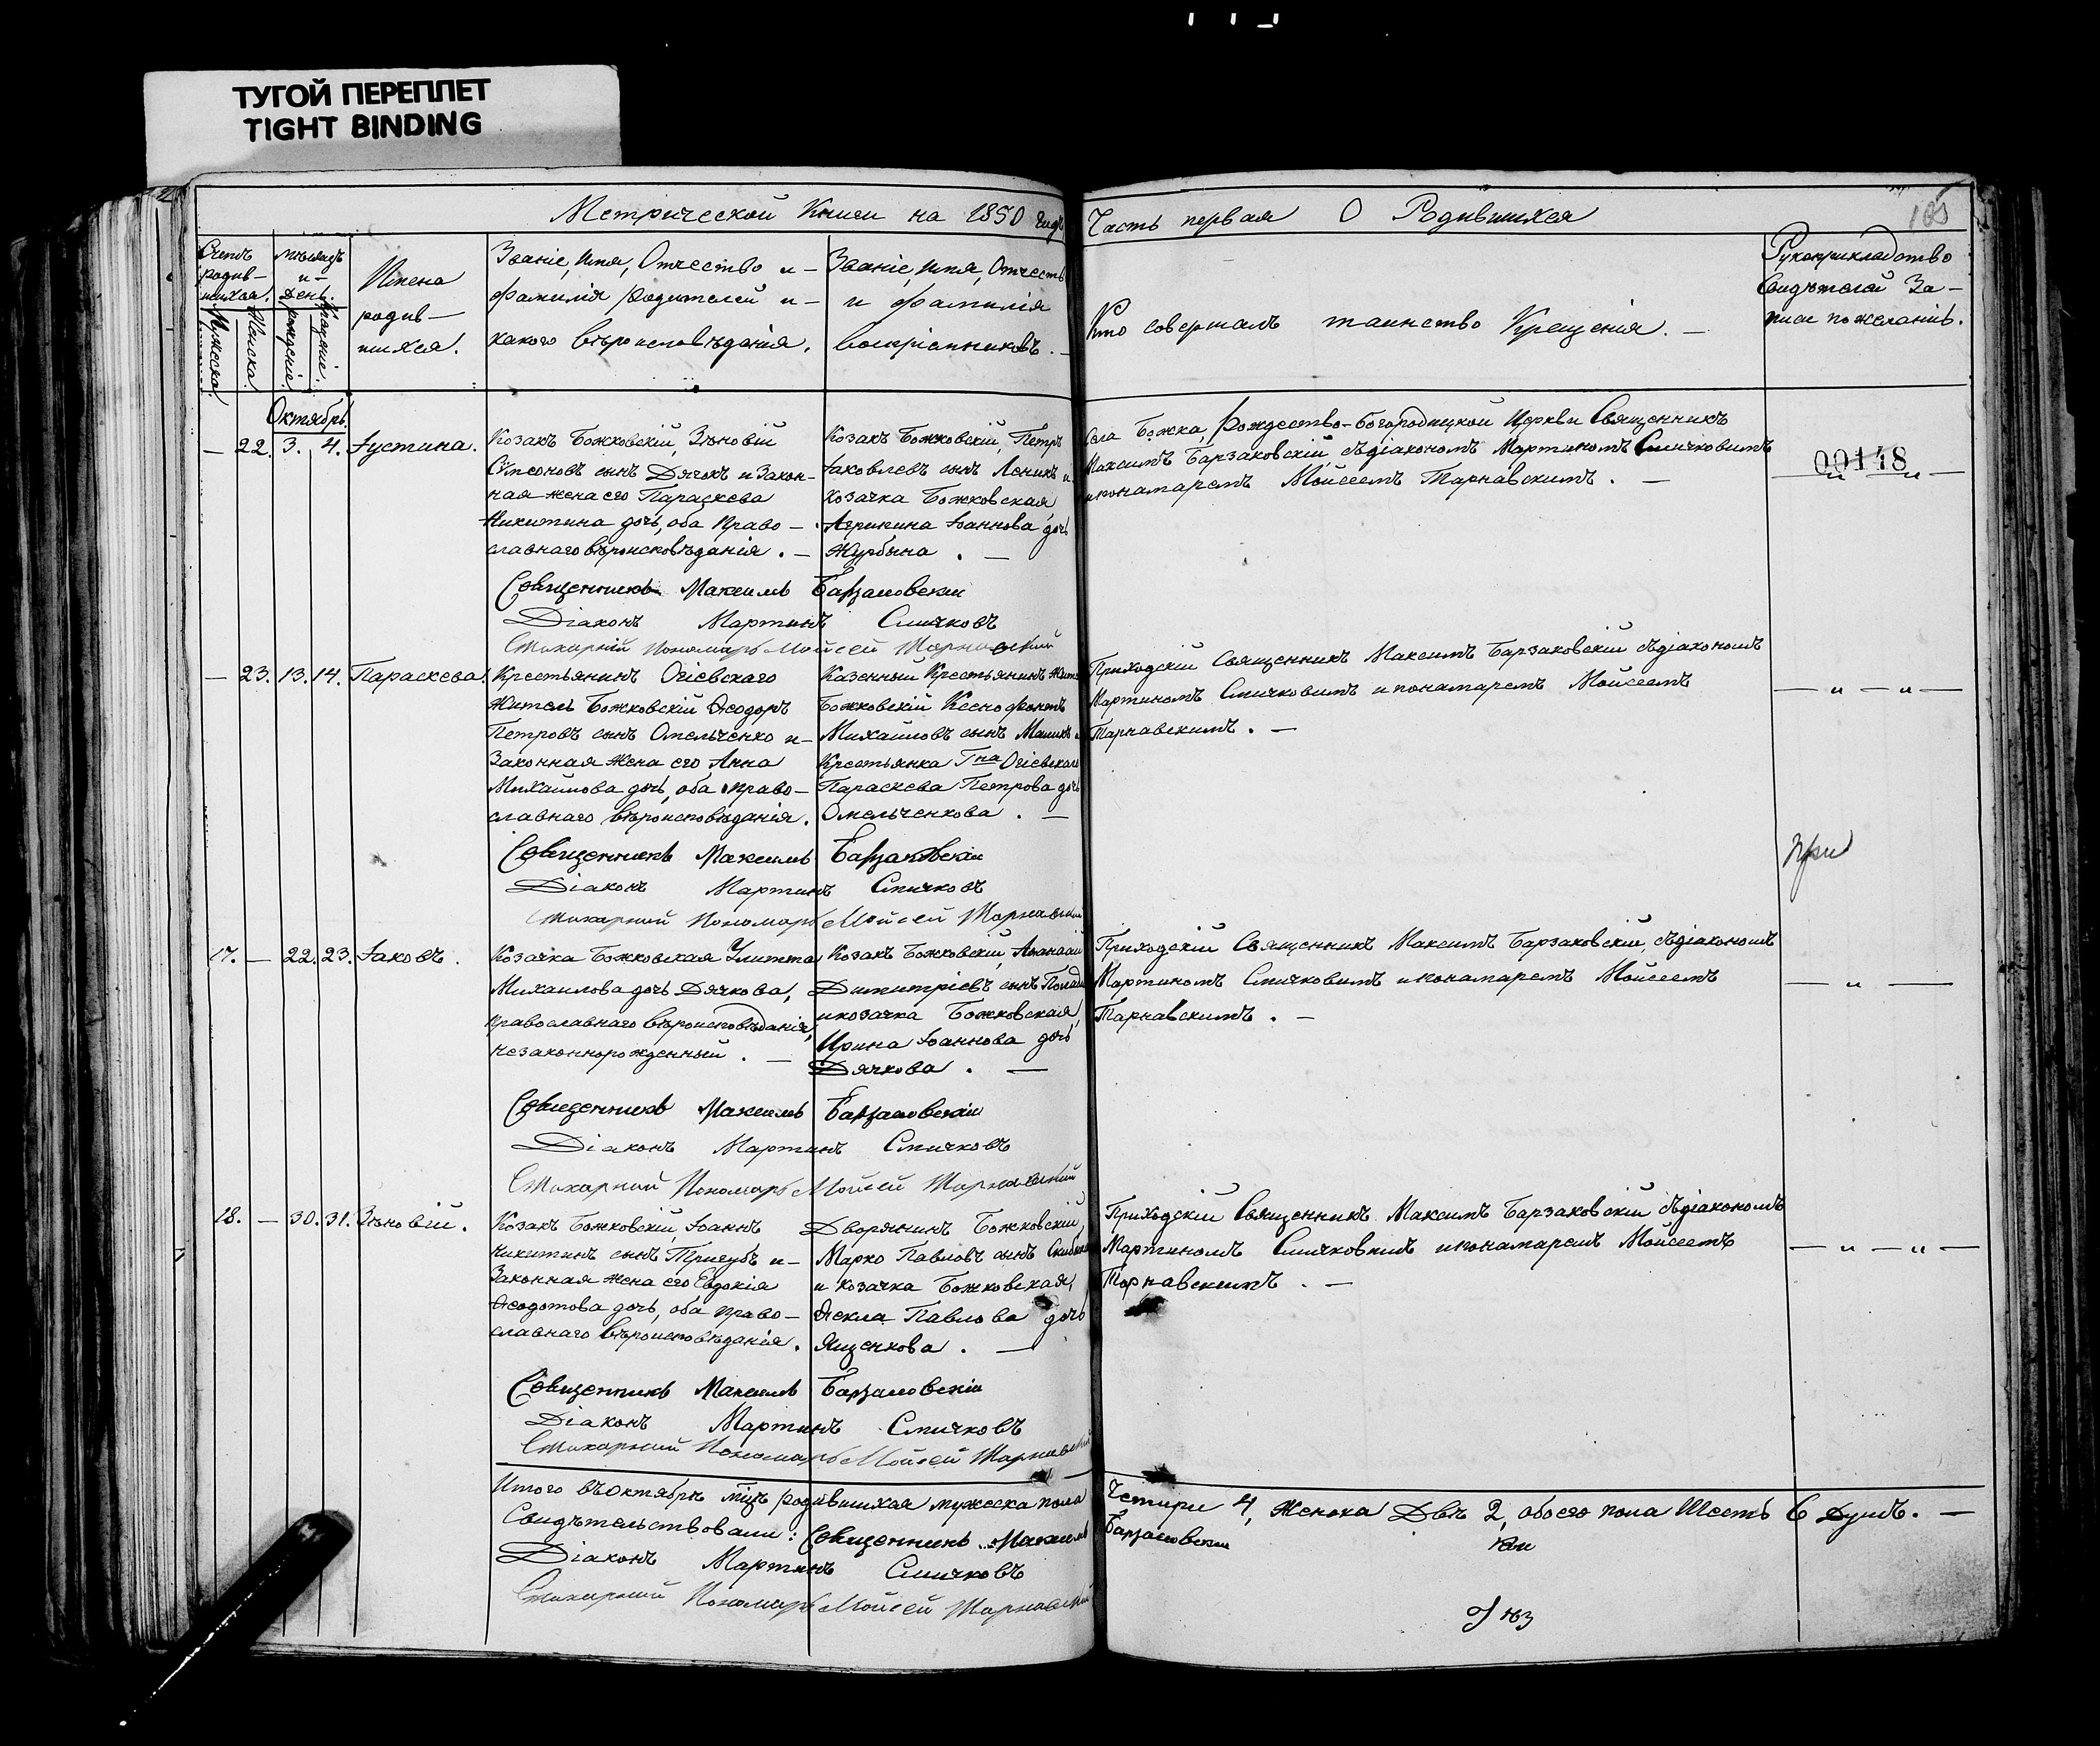 ТУГОЙ ПЕРЕПЛЕТ
TIGHT BINDING
Метрической Книги на 1850 годъ Часть первая О Родившихся
Счетъ родившихся.
Мужеска.
Женска.
Мѣсяцъ и день.
рожденіе.
крещеніе.
Имена
родив-
шихся.
Званіе, имя, Отчество и-
фамилія родителей и-
какого вѣроисповѣданія.
Званіе, имя, Отчество
и фамилія
воспріемниковъ.
Кто совершалъ таинство Крещенія. —
Рукоприкладство
свидѣтелей За-
писи по желанію.
Октябрь
— 22. 3. 4. Іустина.
Козакъ Божковскій, Зѣновій
Сѵмеоновъ сынъ Дячокъ и Закон-
ная жена его Параскева
Никитина дочь, оба право-
славнаго вѣроисповѣданія. —
Козакъ Божковскій, Петръ
Іаковлевъ сынъ Леникъ и
козачка Божковская,
Агрипина Іоаннова дочь
Журбына. —
Села Божка, Рождество-Богородицкой Церкви Священникъ
Максимъ Барзаковскій, съ діакономъ Мартиномъ Смичковимъ
и понамаремъ Мойсеемъ Тарнавскимъ. —
00148
Священникъ Максимъ Барзаковскій
Діаконъ Мартинъ Смичковъ
Стихарный Пономарь Мойсей Тарнавский
— 23. 13. 14. Параскева.
Крестьянинъ Огіевскаго
житель Божковскій Ѳеодоръ
Петровъ сынъ Омельченко и-
Законная жена его, Анна
Михайлова дочь, оба право-
славнаго вѣроисповѣданія.
Казенный Крестьянинъ
Божковскій Ксенофонтъ
Михайловъ сынъ
Крестьянка Гна Огіевскаго
Параскева Петрова дочь
Омельченкова. —
Приходскій Священникъ Максимъ Барзаковскій съ діакономъ
Мартиномъ Смичковимъ и понамаремъ Мойсеемъ
Тарнавскимъ. —
— „ — „ —
Священникъ Максимъ Барзаковскій
Діаконъ Мартинъ Смичковъ
Стихарный Пономарь Мойсей Тарнавский
при
17. — 22. 23. Іаковъ.
Козачка Божковская Улитта
Михаилова дочь Дячкова,
православнаго вѣроисповѣданія,
незаконнорожденный. —
Козакъ Божковскій, Аѳанасій
Димитріевъ сынъ
и козачка Божковская,
Ирина Іоаннова дочь
Дячкова. —
Приходскій Священникъ Максимъ Барзаковскій, съ діакономъ
Мартиномъ Смичковимъ и понамаремъ Мойсеемъ
Тарнавскимъ. —
— „ —
Священникъ Максимъ Барзаковскій
Діаконъ Мартинъ Смичковъ
Стихарный Пономарь Мойсей Тарнавский
18. — 30. 31. Зѣновій.
Козакъ Божковскій, Іоаннъ
Никитинъ сынъ Тригубъ и-
Законная жена его Евдокія
Ѳеодотова дочь, оба право-
славнаго вѣроисповѣданія.
Дворянинъ Божковскій,
Марко Павловъ сынъ
и козачка Божковская,
Ѳекла Павлова дочь
Ященкова. —
Приходскій Священникъ Максимъ Барзаковскій съ діакономъ
Мартиномъ Смичковимъ и понамаремъ Мойсеемъ
Тарнавскимъ. —
— „ — „ —
Священникъ Максимъ Барзаковскій
Діаконъ Мартинъ Смичковъ
Стихарный Пономарь Мойсей Тарнавский
Итого въ октябрѣ мцѣ родившихся мужеска пола Четири 4, женска Двѣ 2, обоего пола Шесть 6 Душъ. —
Свидѣтельствовали: Священникъ Максимъ Барзаковскій
Діаконъ Мартинъ Смичковъ
Стихарный Пономарь Мойсей Тарнавский